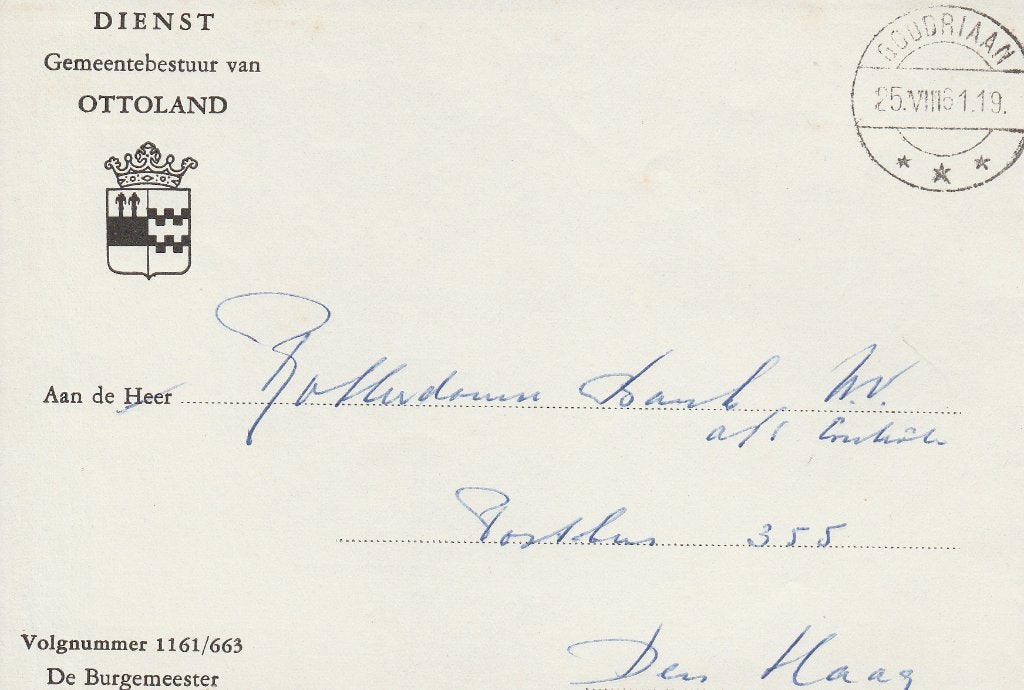 DIENST
Gemeentebestuur van
OTTOLAND
GOUDRIAAN
25.VIII61.19.
Aan de Heer Rotterdamse Bank N.V.
afd Controle
Postbus 355
Den Haag
Volgnummer 1161/663
De Burgemeester